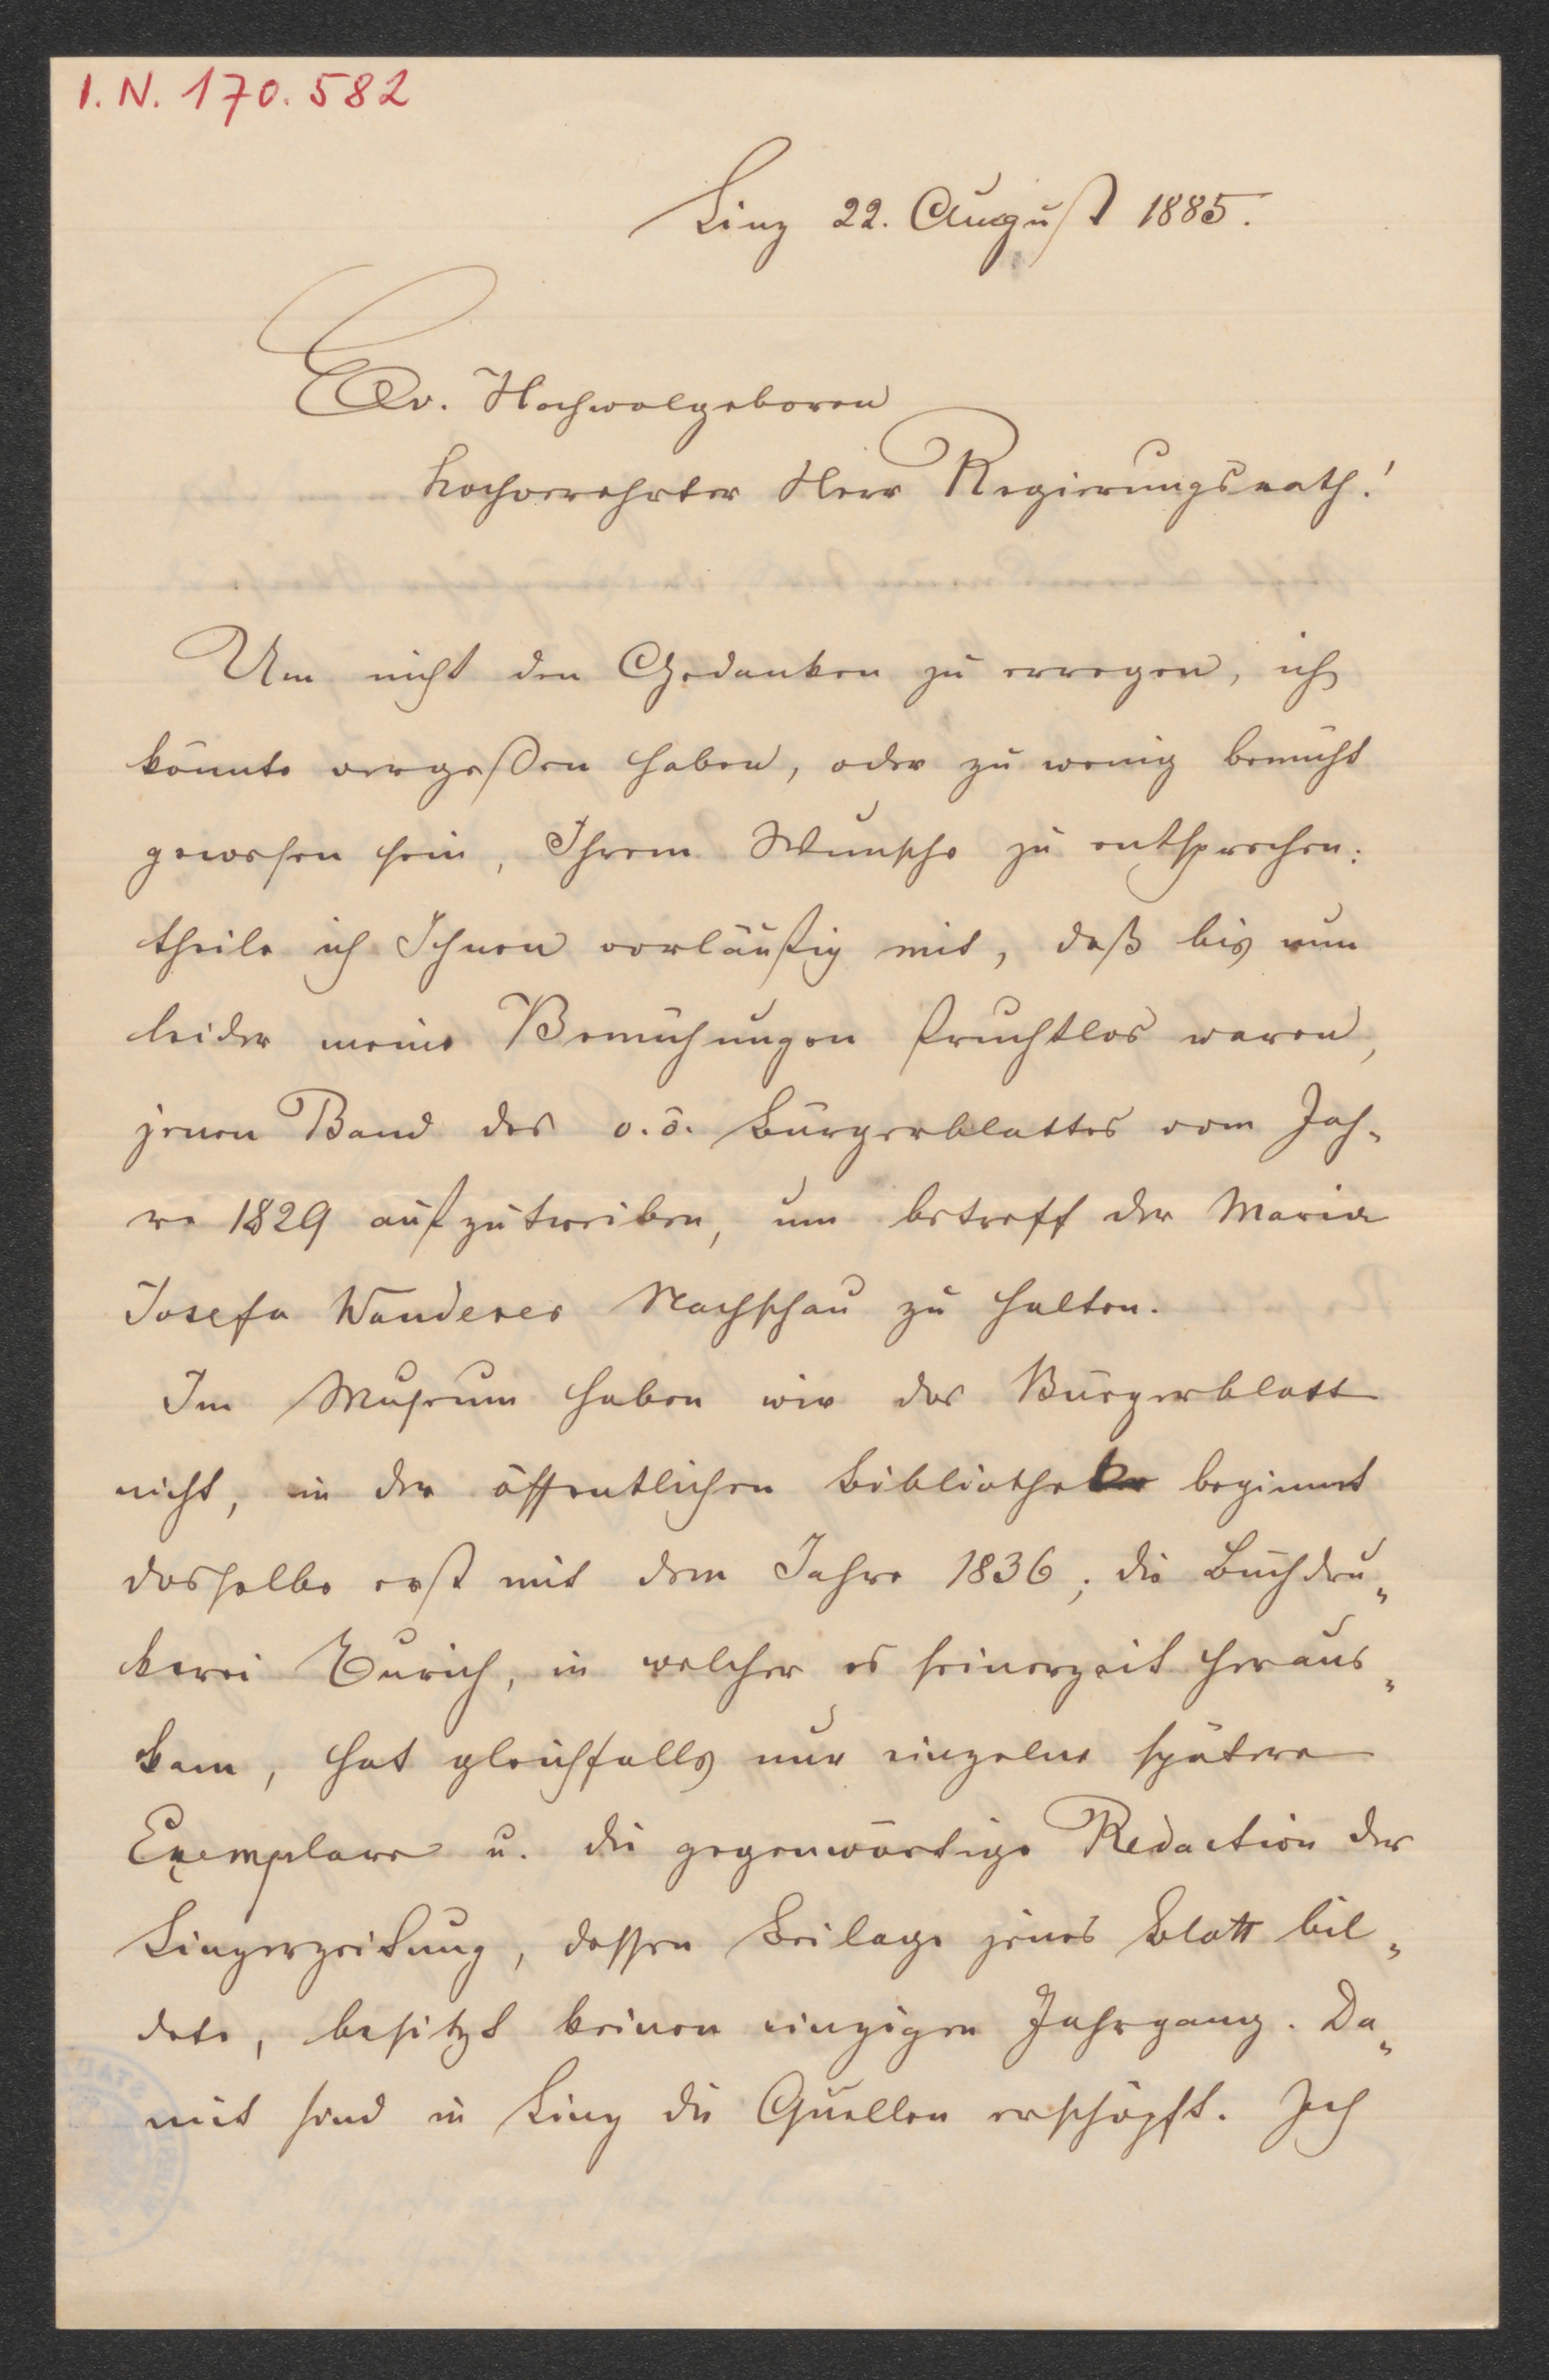 I. N. 170.582
Linz 22. August 1885.
Ew. Hochwolgeboren
hochverehrter Herr Regierungsrath!
Um nicht den Gedanken zu erregen, ich
könnte vergeßen haben, oder zu wenig bemüht
gewesen sein, Ihrem Wunsche zu entsprechen:
theile ich Ihnen vorläufig mit, daß bis nun
leider meine Bemühungen fruchtlos waren,
jenen Band des o.ö. Bürgerblattes vom Jah-
re 1829 aufzutreiben, um betreff der Maria
Josefa Wanderer Nachschau zu halten.
Im Museum haben wir das Bürgerblatt
nicht, in der öffentlichen Bibliothek beginnt
dasselbe erst mit dem Jahre 1836; die Buchdru-
ckerei Eurich, in welcher es seinerzeit heraus-
kam, hat gleichfalls nur einzelne spätere
Exemplare u. die gegenwärtige Redaction der
Linzerzeitung, dessen Beilage jenes Blatt bil-
dete, besitzt keinen einzigen Jahrgang. Da-
mit sind in Linz die Quellen erschöpft. Ich